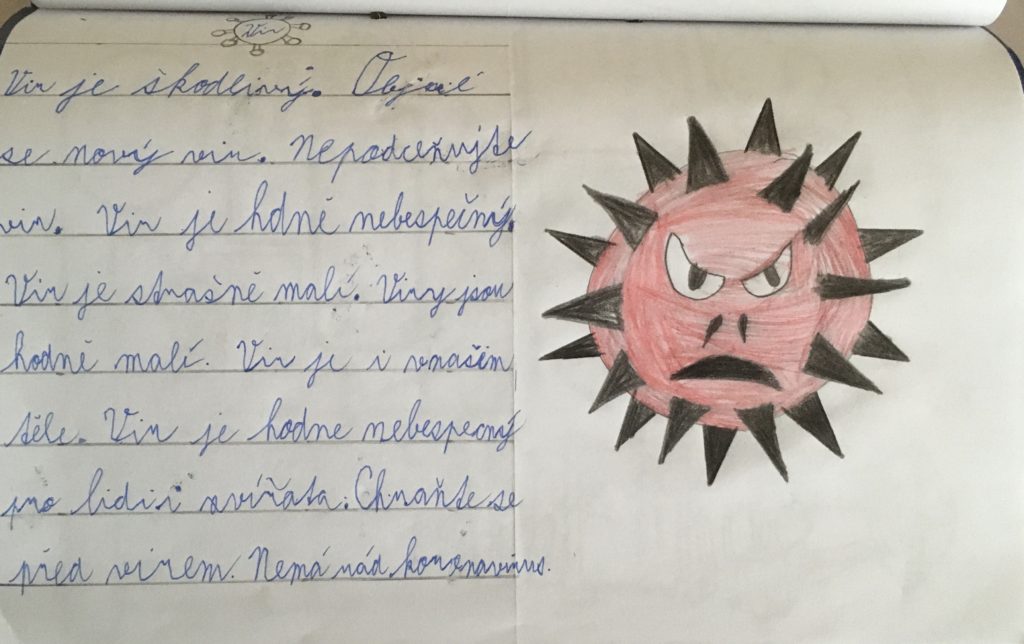 Vir
Vir je škodlivý. Objevil
se nový vir. Nepodceňujte
vir. Vir je hdně nebespečný.
Vir je strašně malí. Viry jsou
hodně malí. Vir je i vnašem
těle. Vir je hodne nebespecný
pro lidi i zvířata. Chraňte se
před virem. Nemá rád koronavirus.